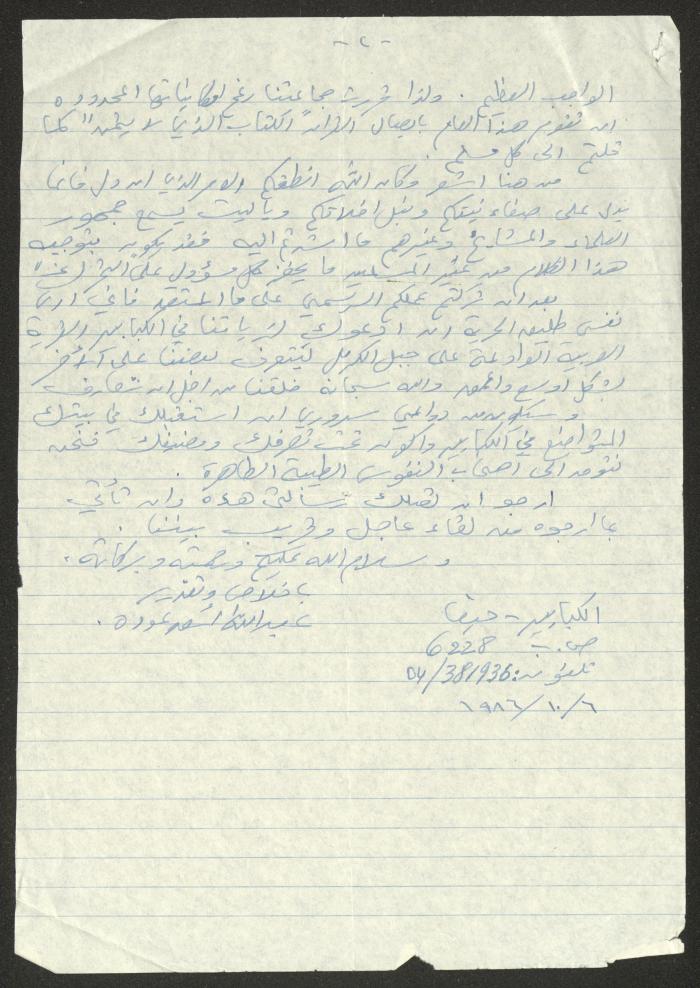 - ٢ -
الواجب العظيم . ولذا قررت جماعتنا رغم امكانياتها المحدودة
ان تقوم هذا العام بايصال القرآن "الكتاب الذي لا يثمن" كما
قلتم الى كل مسلم .
من هنا اشعر وكان الله انطقكم الامر الذي ان دل فانما
يدل على صفاء نيتكم ونبل اخلاقكم وياليت يسمع جمهور
العلماء والمشايخ وغيرهم ما اشرتم اليه فقد يكون بتوجيه
هذا الكلام من غير المسلمين ما يحفز كل مسؤول على
بعد ان تركتم عملكم الرسمي على ما اعتقد فاني ارى
نفسي طليق الحرية ان ادعوك لزيارتنا في الكبابير القرية
العربية الوادعة على جبل الكرمل ليتعرف بعضنا على الآخر
بشكل اوسع واعمق والله سبحانه خلقنا من اجل ان نتعارف
وسيكون من دواعي سروري ان استقبلك في بيتك
المتواضع في الكبابير واكون تحت تصرفك ومضيفك فنحن
نتوق الى اصحاب النفوس الطيبة الطاهرة .
ارجو ان تصلك رسالتي هذه وان تأتي
بما ارجوه من لقاء عاجل وقريب بيننا .
وسلام الله عليكم ورحمته وبركاته .
باخلاص وتقدير
عبدالله اسعد عوده .
الكبابير - حيفا
ص.ب 6228
تلفون: 04/381936
١٩٨٦/١٠/٦